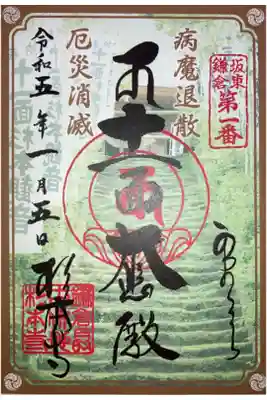 坂東
鎌倉
第一番
病魔退散
十一面大悲殿
厄災消滅
令和五年一月五日
杉本寺